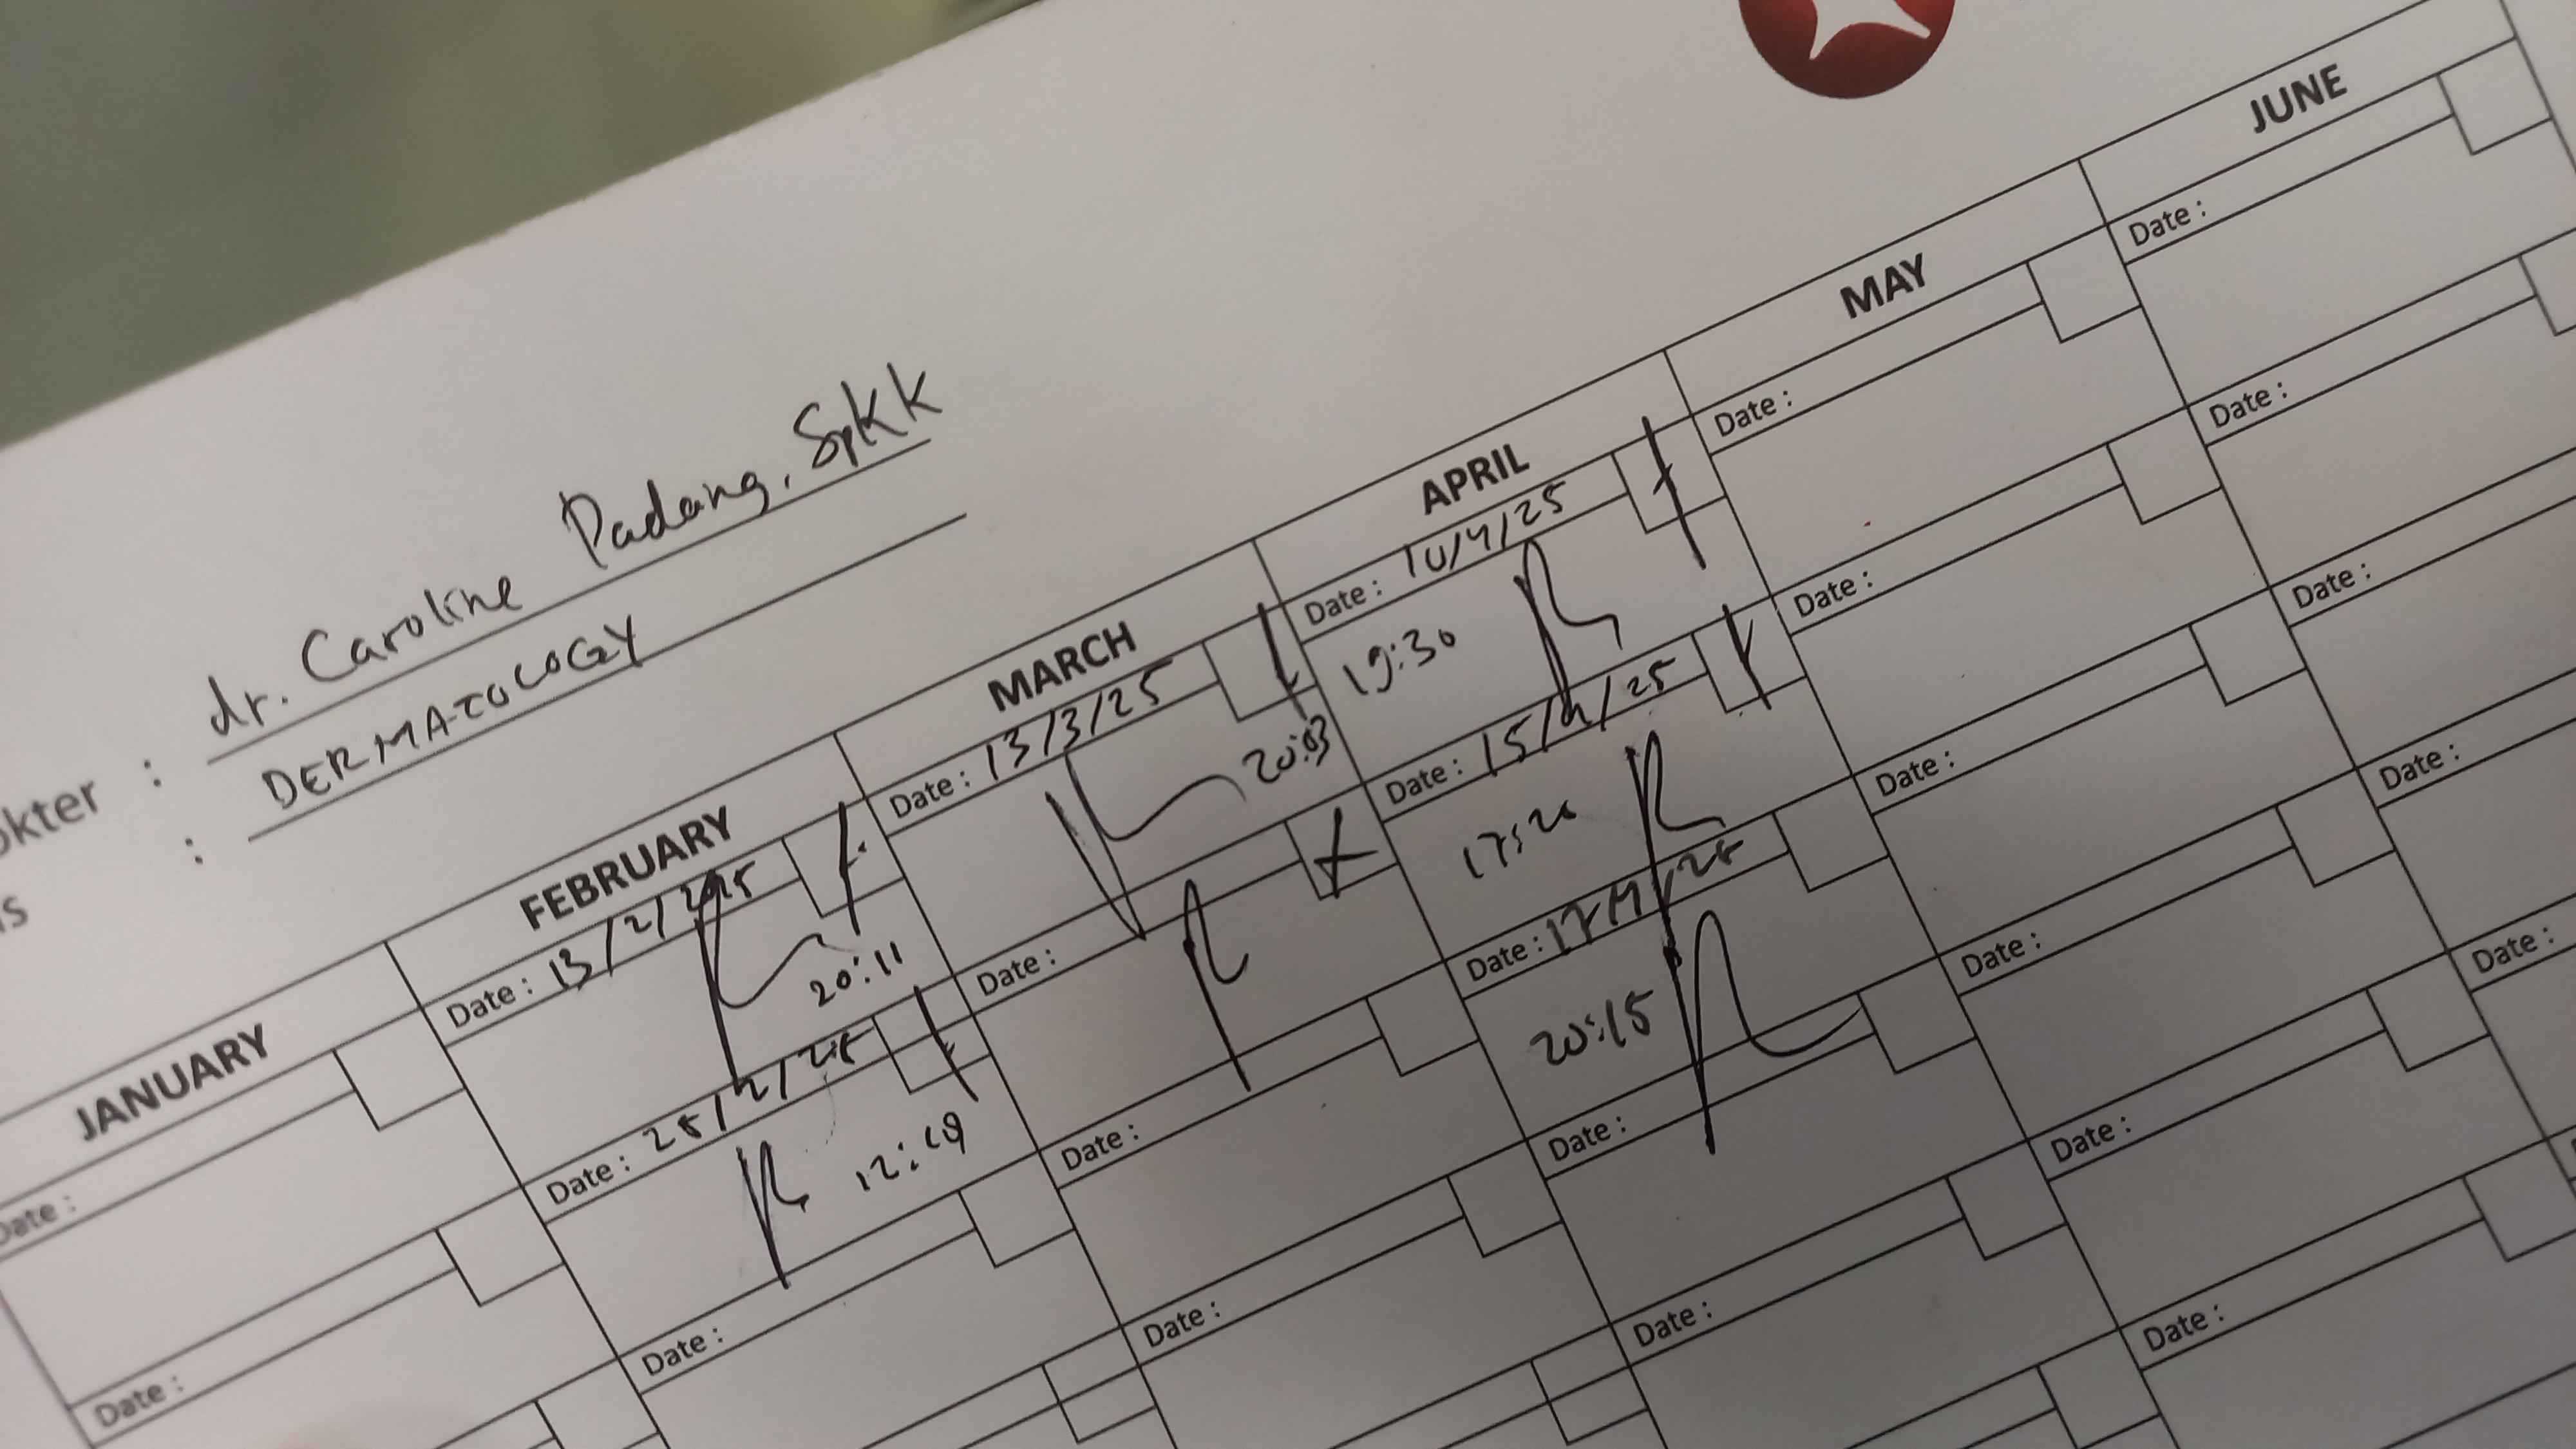 okter : dr. Caroline Padang, SpKK
is : DERMATOLOGY
JANUARY
Date :
Date :
FEBRUARY
Date : 13/2/2025
20:11
Date : 25/2/25
12:19
Date :
MARCH
Date : 13/3/25
20:03
Date :
Date :
Date :
APRIL
Date : 10/4/25
19:30
Date : 15/4/25
17:20
Date : 17/4/25
20:15
Date :
Date :
MAY
Date :
Date :
Date :
Date :
Date :
Date :
JUNE
Date :
Date :
Date :
Date :
Date :